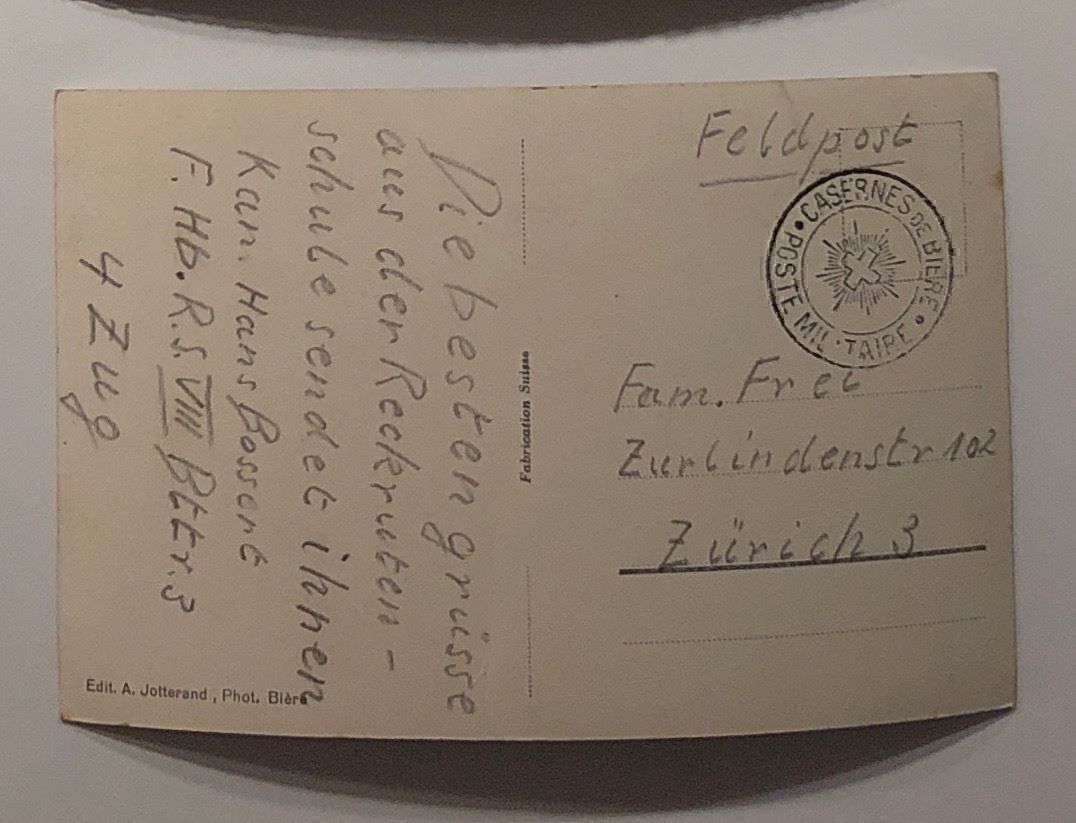 Die besten grüsse
aus der Reckruten-
schule sendet ihnen
Kan. Hans Bossert
F. Hb. R.S. VIII Bttr. 3
4 Zug
Edit. A. Jotterand, Phot. Bière
Fabrication Suisse
Feldpost
CASERNES DE BIÈRE • POSTE MIL·TAIRE •
Fam. Frei
Zurlindenstr 102
Zürich 3